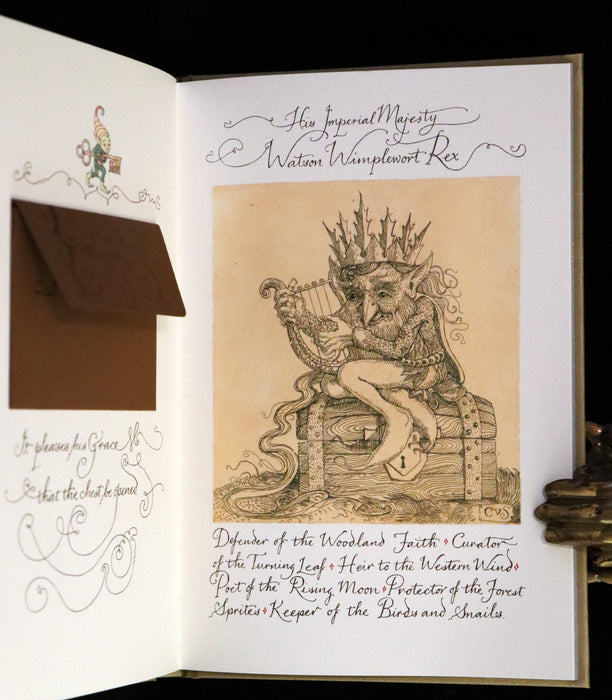 It pleases his Grace
that the chest be opened
His Imperial Majesty
Watson Wimplewort Rex
CvS
Defender of the Woodland Faith ♦ Curator
of the Turning Leaf ♦ Heir to the Western Wind ♦
Poet of the Rising Moon ♦ Protector of the Forest
Sprites ♦ Keeper of the Birds and Snails.